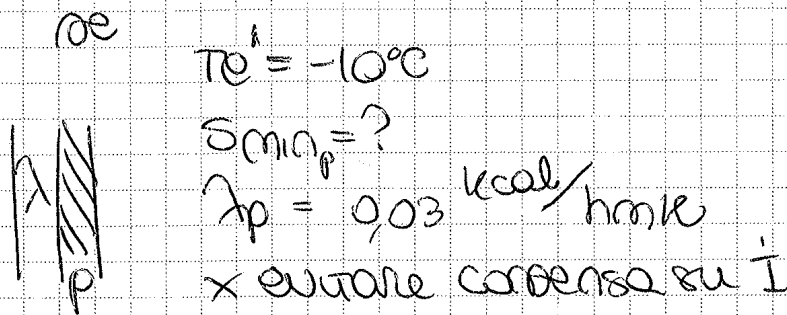 αe
Te' = -10°C
Smin p = ?
λ
λp = 0,03 kcal/hmK
p
x evitare condensa su i